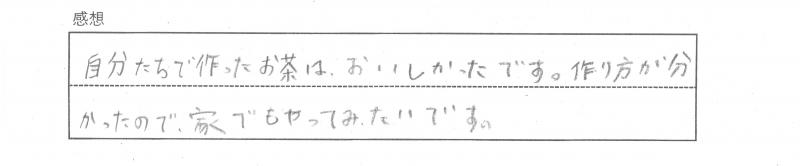 感想
自分たちで作ったお茶は、おいしかったです。作り方が分
かったので、家でもやってみたいです。